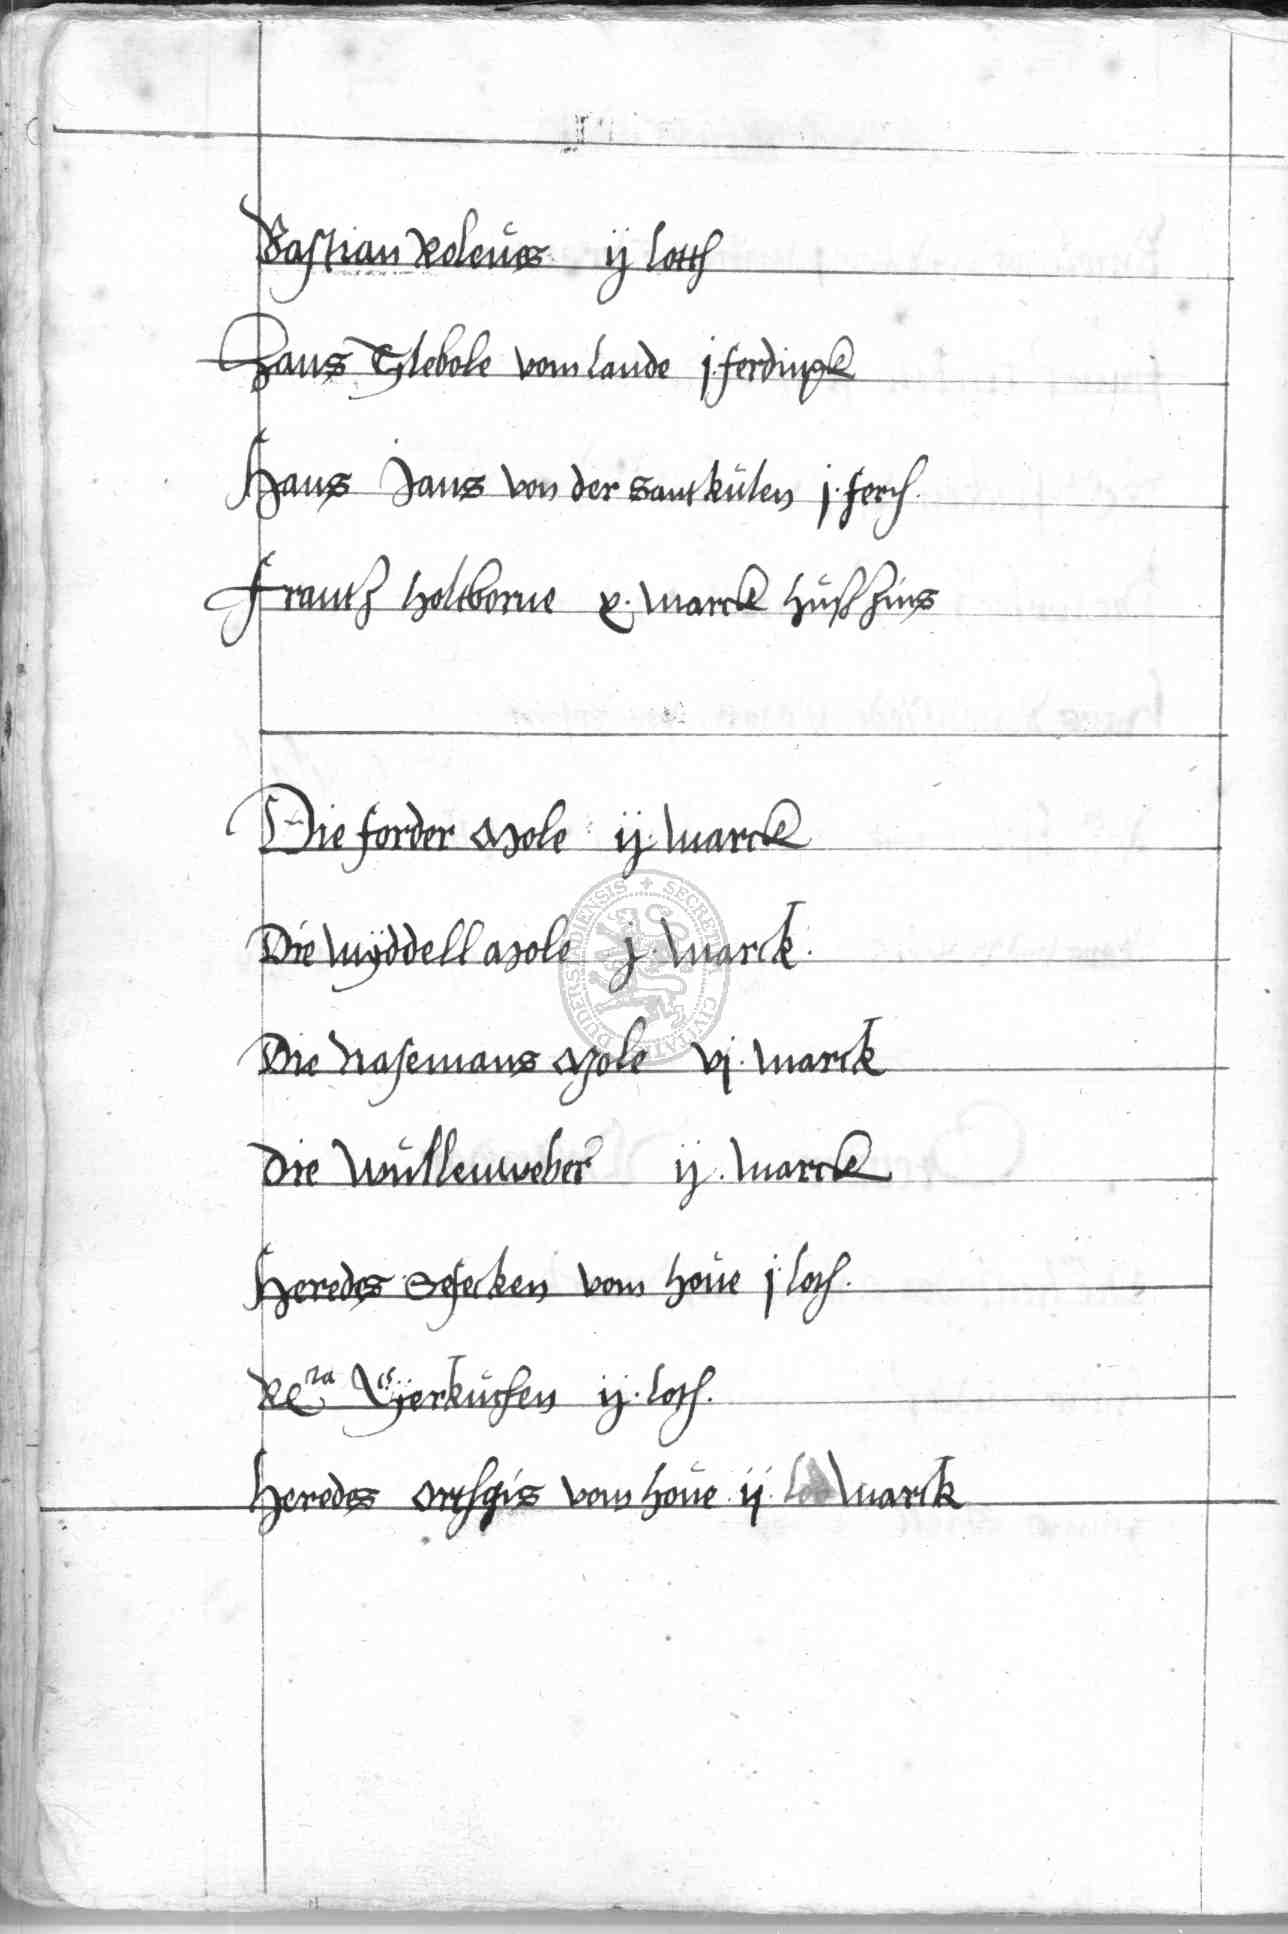 Bastian Roleües ij lotth
Hans Tylebole vom lande j ferdingk
Hans Jans von der Santkülen j. ferd.
Frantz Holtborne x. marck hüß zins
Die forder Mole ij. marck
Die Myddell Mole j. Marck.
Die Nasemans Mole vj. marck
Die Wüllenweber ij. marck
Heredes Desecken vom Houe j loth.
Rcta Vÿerkuchen ij. loth.
Heredes Orthgis vom houe ij. marck
SECRET CIVITATIS DUDERSTADIENSIS